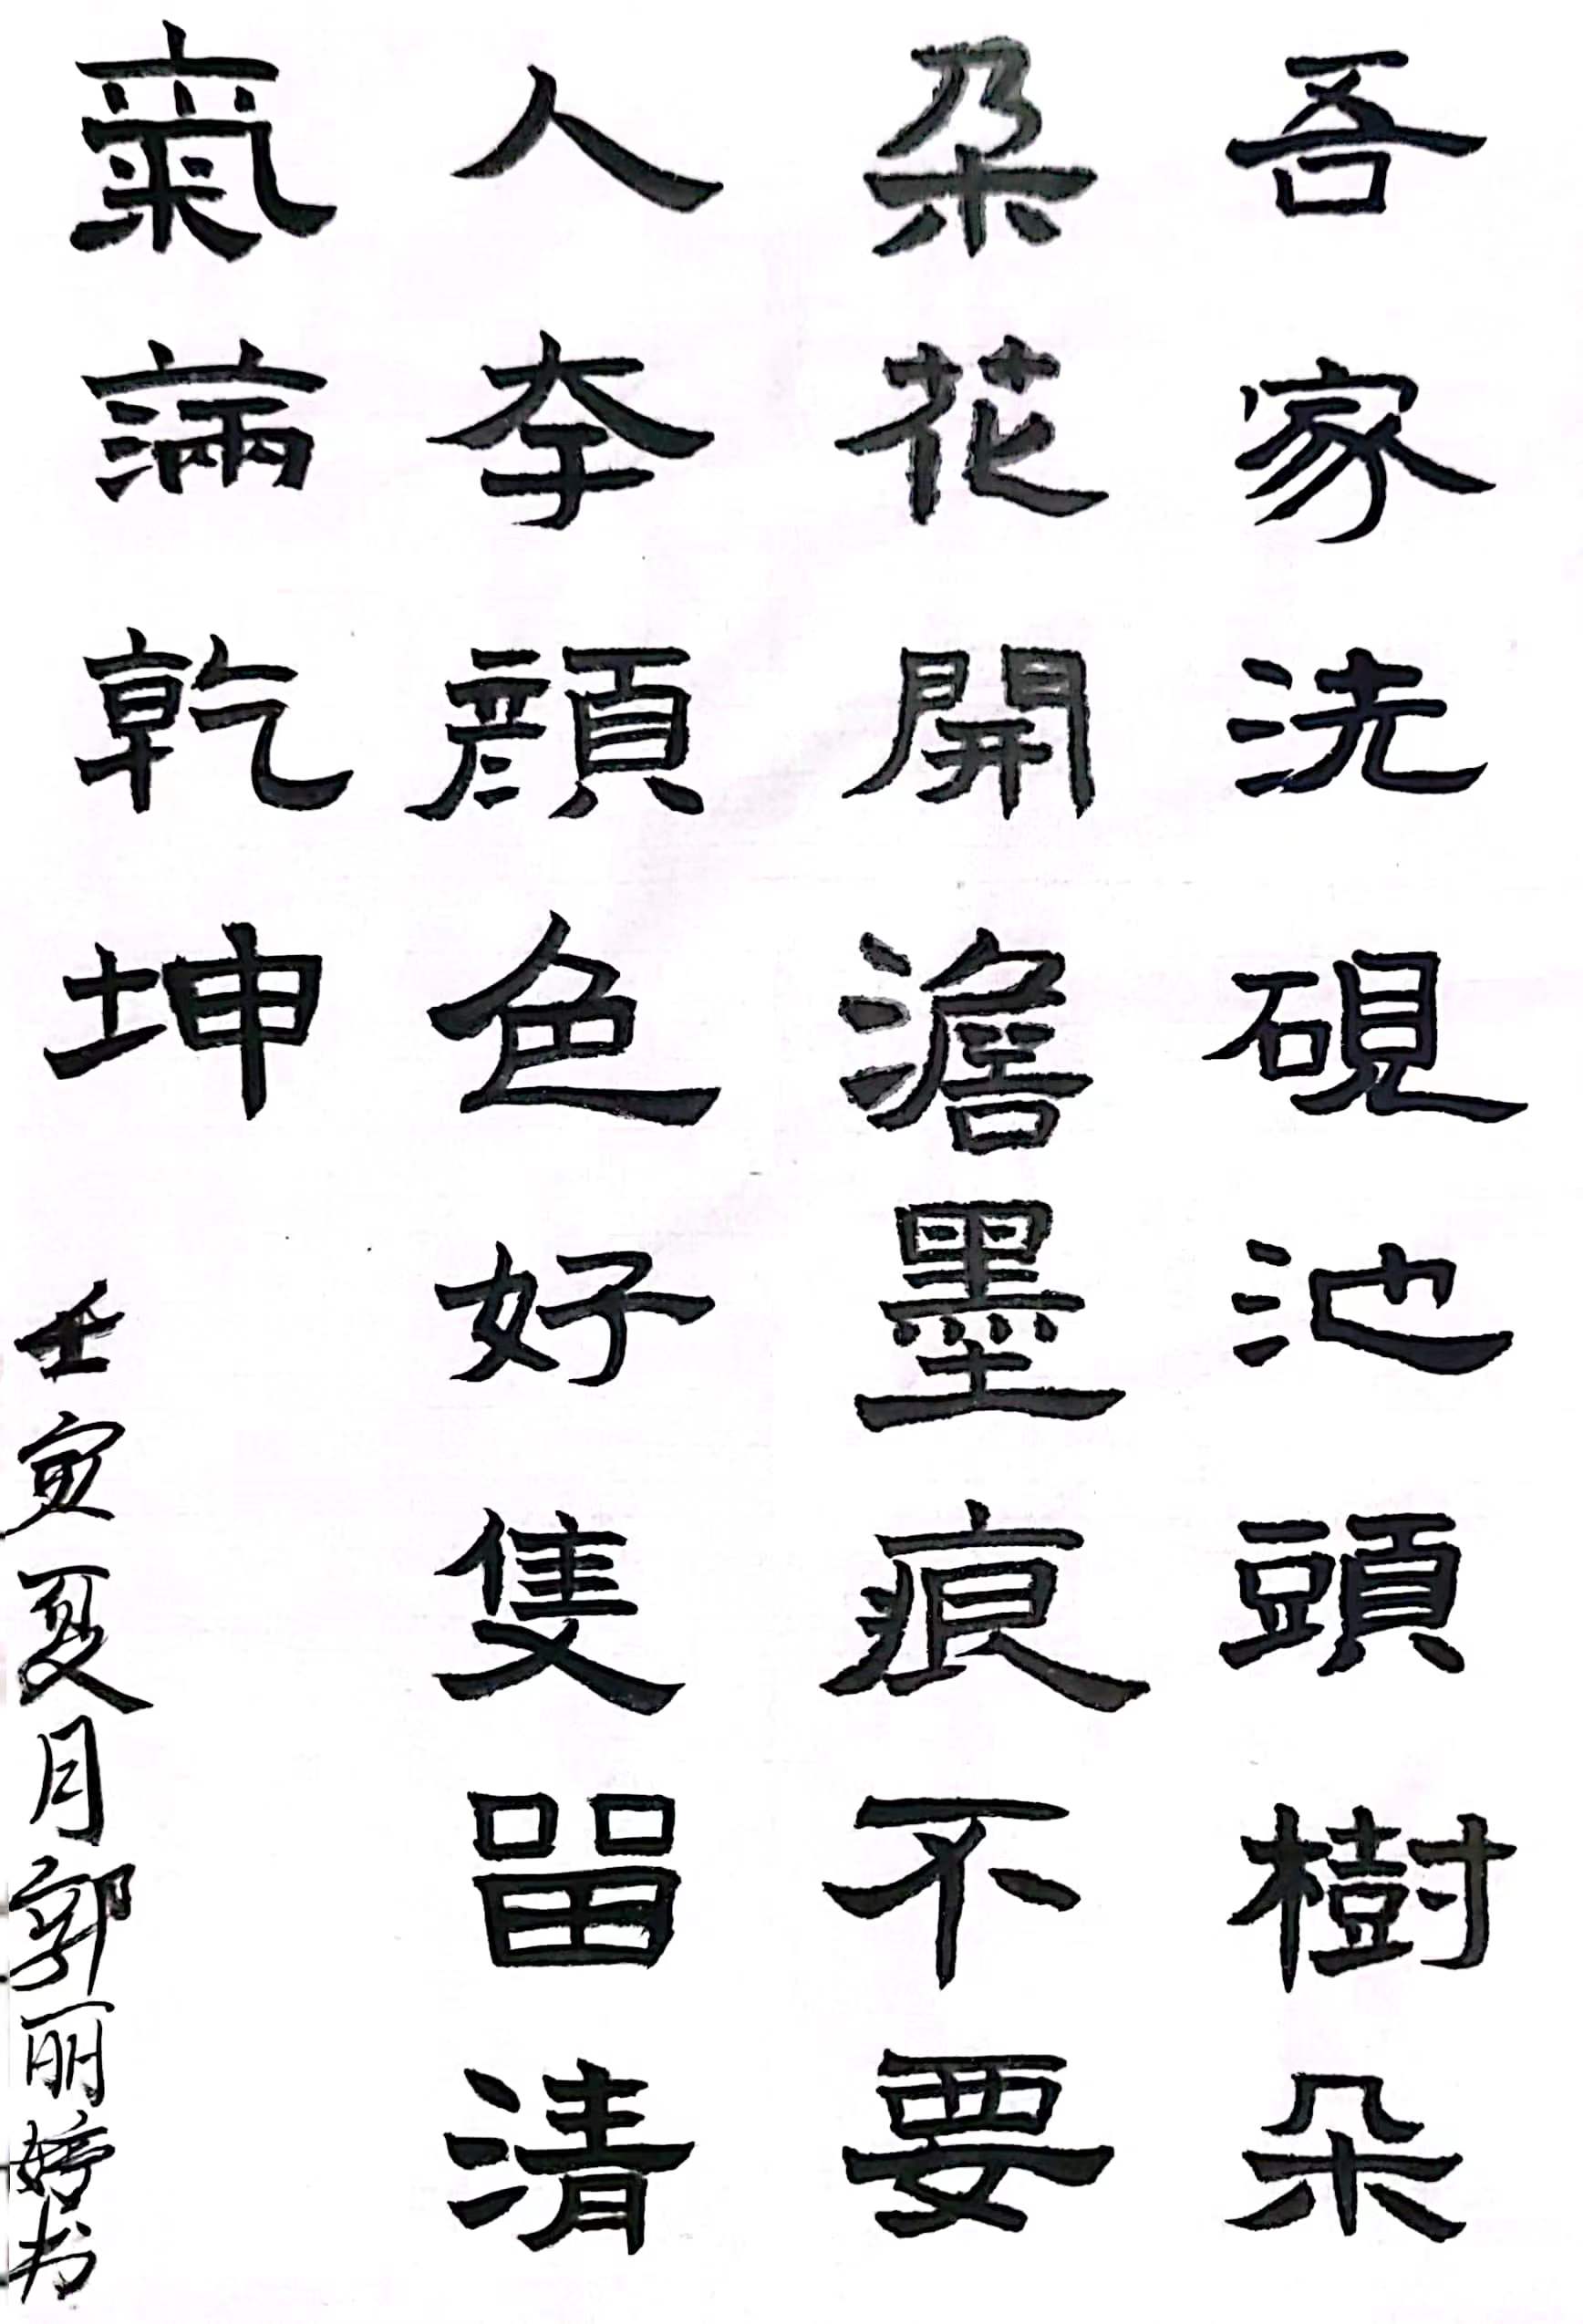 吾家洗硯池頭樹朵
朵花開澹墨痕不要
人夸顔色好隻畱清
氣滿乾坤
壬寅夏月郭丽婷书